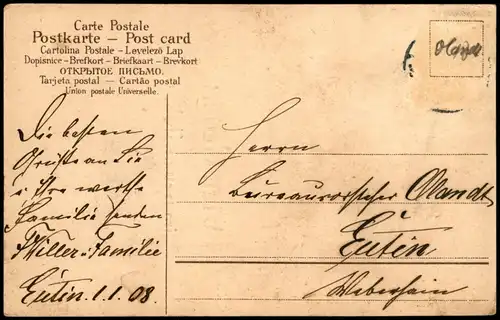 Carte Postale
Postkarte – Post card
Cartolina Postale – Levelező Lap
Dopisnice – Brefkort – Briefkaart – Brevkort
ОТКРЫТОЕ ПИСЬМО.
Tarjeta postal – Cartão postal
Union postale Universelle.
Olandt
Die besten
Grüße an Sie
u Ihre werthe
Familie senden
F Willer u. Familie
Eutin. 1.1.08.
Herrn
Bureauvorsteher Olandt
Eutin
Weberhain